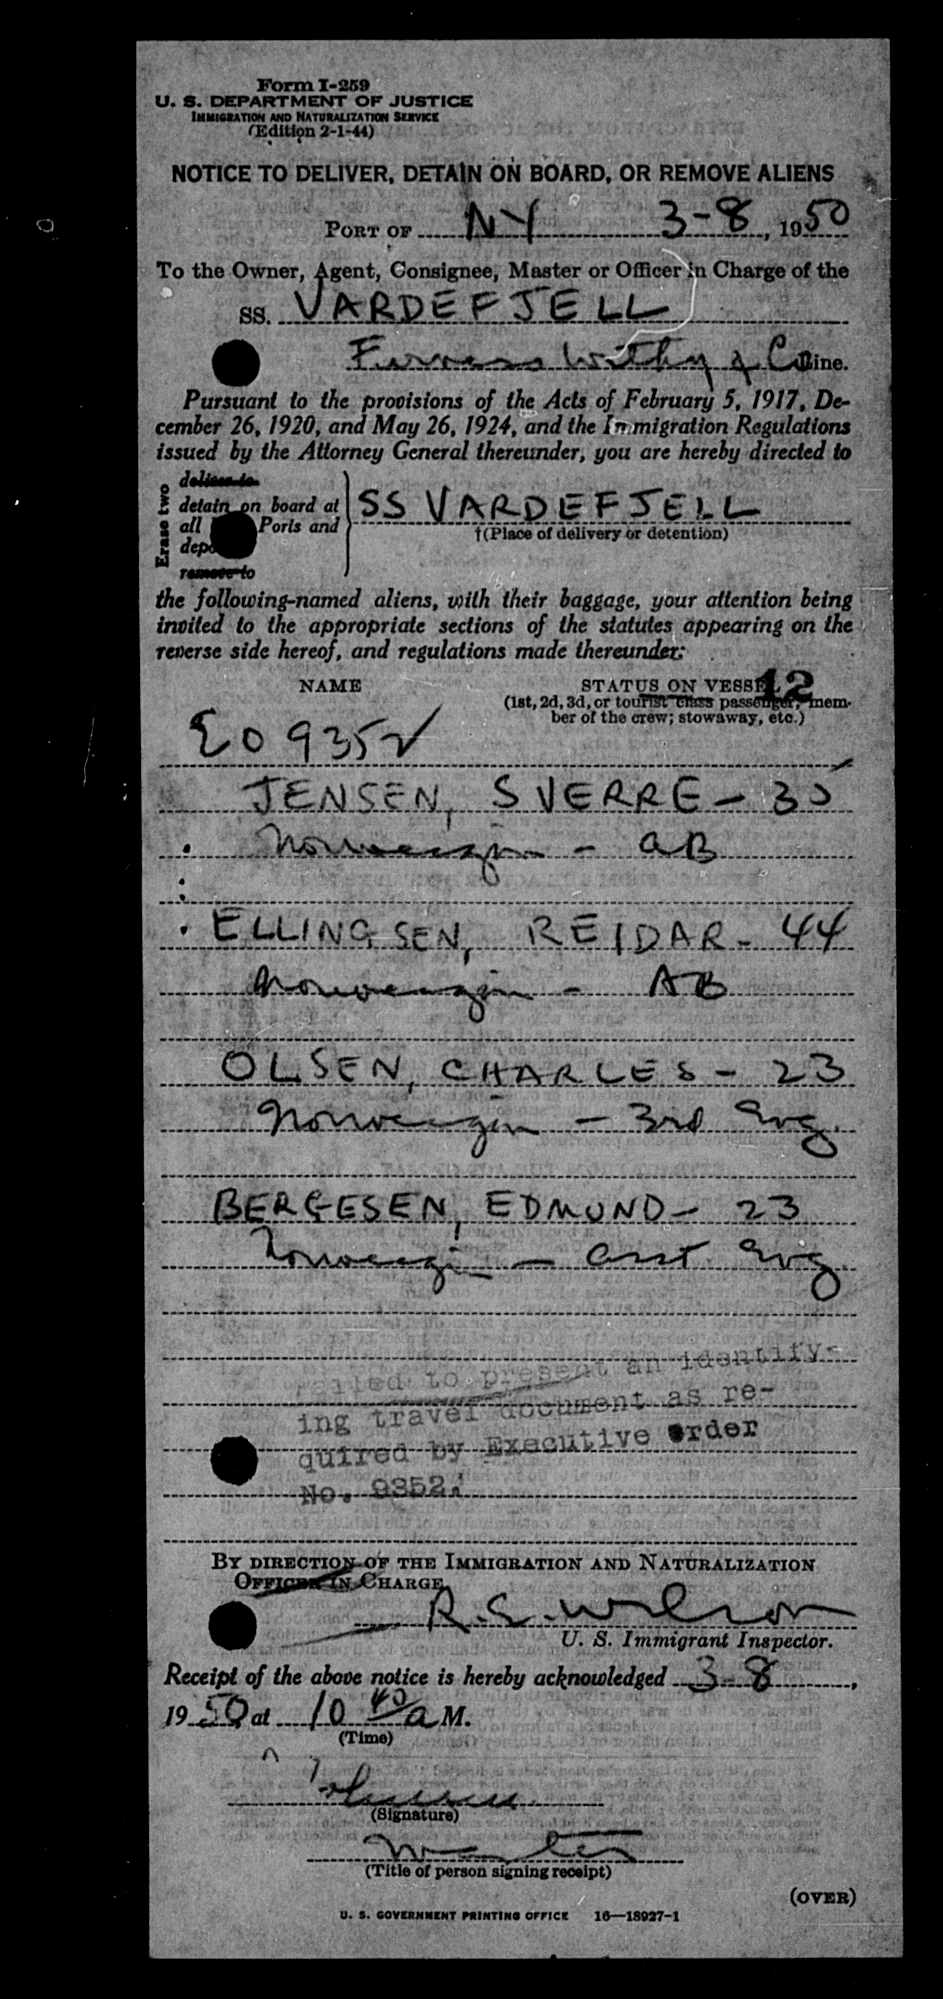 Form I-259
U. S. DEPARTMENT OF JUSTICE
IMMIGRATION AND NATURALIZATION SERVICE
(Edition 2-1-44)
NOTICE TO DELIVER, DETAIN ON BOARD, OR REMOVE ALIENS
PORT OF NY 3-8, 1950
To the Owner, Agent, Consignee, Master or Officer in Charge of the
SS. VARDEFJELL
Furness Withy & Co Line.
Pursuant to the provisions of the Acts of February 5, 1917, De-
cember 26, 1920, and May 26, 1924, and the Immigration Regulations
issued by the Attorney General thereunder, you are hereby directed to
Erase two
deliver to
detain on board at
all Ports and
remove to
SS VARDEFJELL
†(Place of delivery or detention)
the following-named aliens, with their baggage, your attention being
invited to the appropriate sections of the statutes appearing on the
reverse side hereof, and regulations made thereunder:
NAME STATUS ON VESSEL 12
(1st, 2d, 3d, or tourist class passenger, mem-
ber of the crew; stowaway, etc.)
EO 9352
JENSEN, SVERRE - 35
Norwegian - AB
ELLINGSEN, REIDAR - 44
Norwegian - AB
OLSEN, CHARLES - 23
Norwegian - 3rd Eng.
BERGESEN, EDMUND - 23
Norwegian - Asst. Eng.
Failed to present an identify-
ing travel document as re-
quired by Executive Order
No. 9352.
BY DIRECTION OF THE IMMIGRATION AND NATURALIZATION
OFFICER IN CHARGE
R. S. Wilson
U. S. Immigrant Inspector.
Receipt of the above notice is hereby acknowledged 3-8,
1950 at 10 40 a M.
(Time)
(Signature)
Master
(Title of person signing receipt)
(OVER)
U. S. GOVERNMENT PRINTING OFFICE 16—18927-1